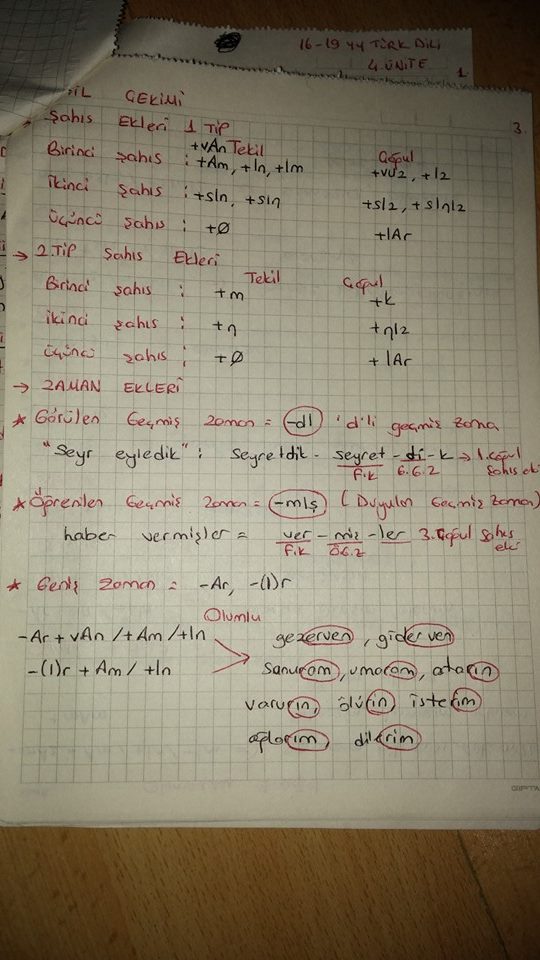 16-19 yy TÜRK DİLİ
4. ÜNİTE
1
3
İL ÇEKİMİ
→ Şahıs Ekleri 1 TİP
+vAn Tekil Çoğul
Birinci şahıs : +Am, +In, +Im +vUz, +Iz
İkinci şahıs : +sIn, +sIη +sIz, +sIηIz
Üçüncü şahıs : +Ø +lAr
→ 2. TİP Şahıs Ekleri
Tekil Çoğul
Birinci şahıs : +m +k
İkinci şahıs : +η +ηIz
Üçüncü şahıs : +Ø +lAr
→ ZAMAN EKLERİ
* Görülen Geçmiş Zaman = -dI 'di'li geçmiş zama
"Seyr eyledik" : Seyretdik - seyret - di - k → 1. Çoğul
F.K G.G.Z şahıs eki
* Öğrenilen Geçmiş Zaman = -mIş (Duyulan Geçmiş Zaman)
haber vermişler = ver - miş - ler 3. Çoğul şahıs
F.K Ö.G.Z eki
* Geniş Zaman = -Ar, -(I)r
Olumlu
-Ar + vAn / +Am / +In gezerven, giderven
-(I)r + Am / +In sanuram, umaram, ataring
varurın, ölürin, isterim
ağlarım, dilerim
GIPTA